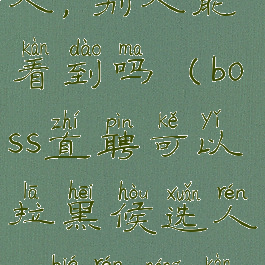 人，别人能
kàn dào ma
看到吗（bo
zhí pìn kě yǐ
ss直聘可以
lā hēi hòu xuǎn rén
拉黑候选人
bié rén néng kàn